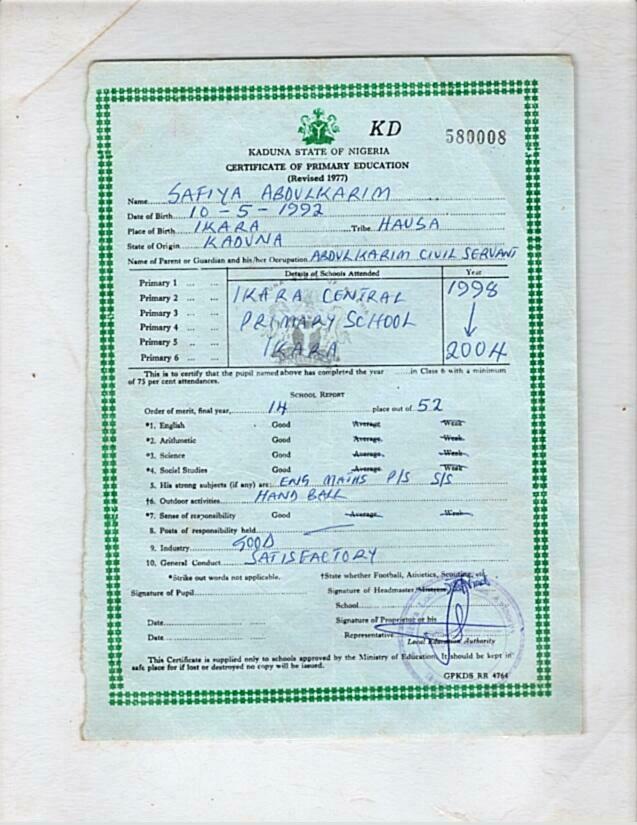 KD 580008
KADUNA STATE OF NIGERIA
CERTIFICATE OF PRIMARY EDUCATION
(Revised 1977)
Name SAFIYA ABDULKARIM
Date of Birth 10 - 5 - 1992
Place of Birth IKARA Tribe HAUSA
State of Origin KADUNA
Name of Parent or Guardian and his/her Occupation ABDULKARIM CIVIL SERVANT
Details of Schools Attended Year
Primary 1 ... ...
Primary 2 ... ... IKARA CENTRAL 1998
Primary 3 ... ...
Primary 4 ... ... PRIMARY SCHOOL
Primary 5 ... ...
Primary 6 ... ... IKARA 2004
This is to certify that the pupil named above has completed the year ......in Class 6 with a minimum
of 75 per cent attendances.
SCHOOL REPORT
Order of merit, final year, 14 place out of 52
*1. English Good Average Weak
*2. Arithmetic Good Average Weak
*3. Science Good Average Weak
*4. Social Studies Good Average Weak
5. His strong subjects (if any) are: ENG MATHS P/S S/S
†6. Outdoor activities HAND BALL
*7. Sense of responsibility Good Average Weak
8. Posts of responsibility held
9. Industry GOOD
10. General Conduct SATISFACTORY
*Strike out words not applicable. †State whether Football, Athletics, Scouting, etc.
Signature of Pupil Signature of Headmaster/Mistress
School
Date Signature of Proprietor or his
Date Representative
Local Education Authority
This Certificate is supplied only to schools approved by the Ministry of Education. It should be kept in
safe place for if lost or destroyed no copy will be issued.
GPKDS RR 4764